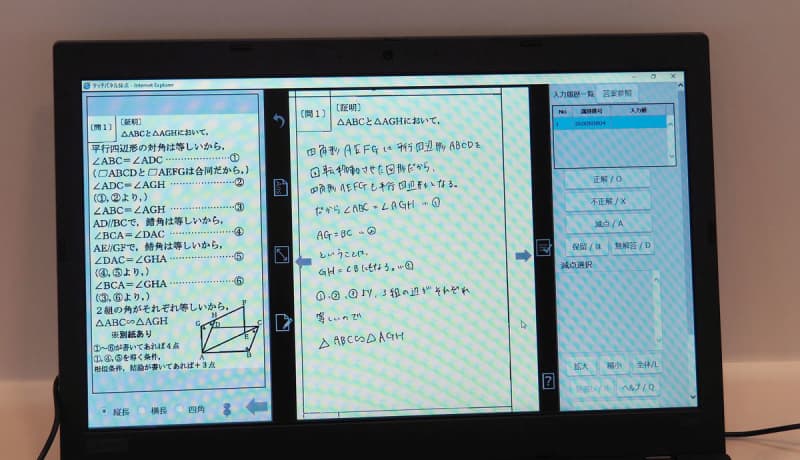 タッチパネル採点 - Internet Explorer
[問1]
[証明]
△ABCと△AGHにおいて,
平行四辺形の対角は等しいから,
∠ABC=∠ADC ……………… ①
(□ABCDと□AEFGは合同だから,)
∠ADC=∠AGH ……………… ②
(①,②より,)
∠ABC=∠AGH ……………… ③
AD//BCで, 錯角は等しいから,
∠BCA=∠DAC ……………… ④
AE//GFで, 錯角は等しいから,
∠DAC=∠GHA ……………… ⑤
(④,⑤より,)
∠BCA=∠GHA ……………… ⑥
(③,⑥より,)
2組の角がそれぞれ等しいから,
△ABC∽△AGH
※別紙あり
①~⑥が書いてあれば4点
①,④,⑤を導く条件,
相似条件, 結論が書いてあれば+3点
F
H
G
D
C
E
A
B
縦長
横長
四角
[問1]
[証明]
△ABCと△AGHにおいて,
四角形AEFGは平行四辺形ABCDを
回転移動させた図形だから,
四角形AEFGも平行四辺形になる。
だから∠ABC=∠AGH…①
AG=BC…②
ということは,
GH=CBにもなる。…③
①,②,③より,3組の辺がそれぞれ
等しいので
△ABC∽△AGH
?
入力履歴一覧
答案参照
No
入力値
1
正解 / O
不正解 / X
減点 / A
保留 / B
無解答 / D
減点選択
拡大
縮小
全体/L
ヘルプ / Q